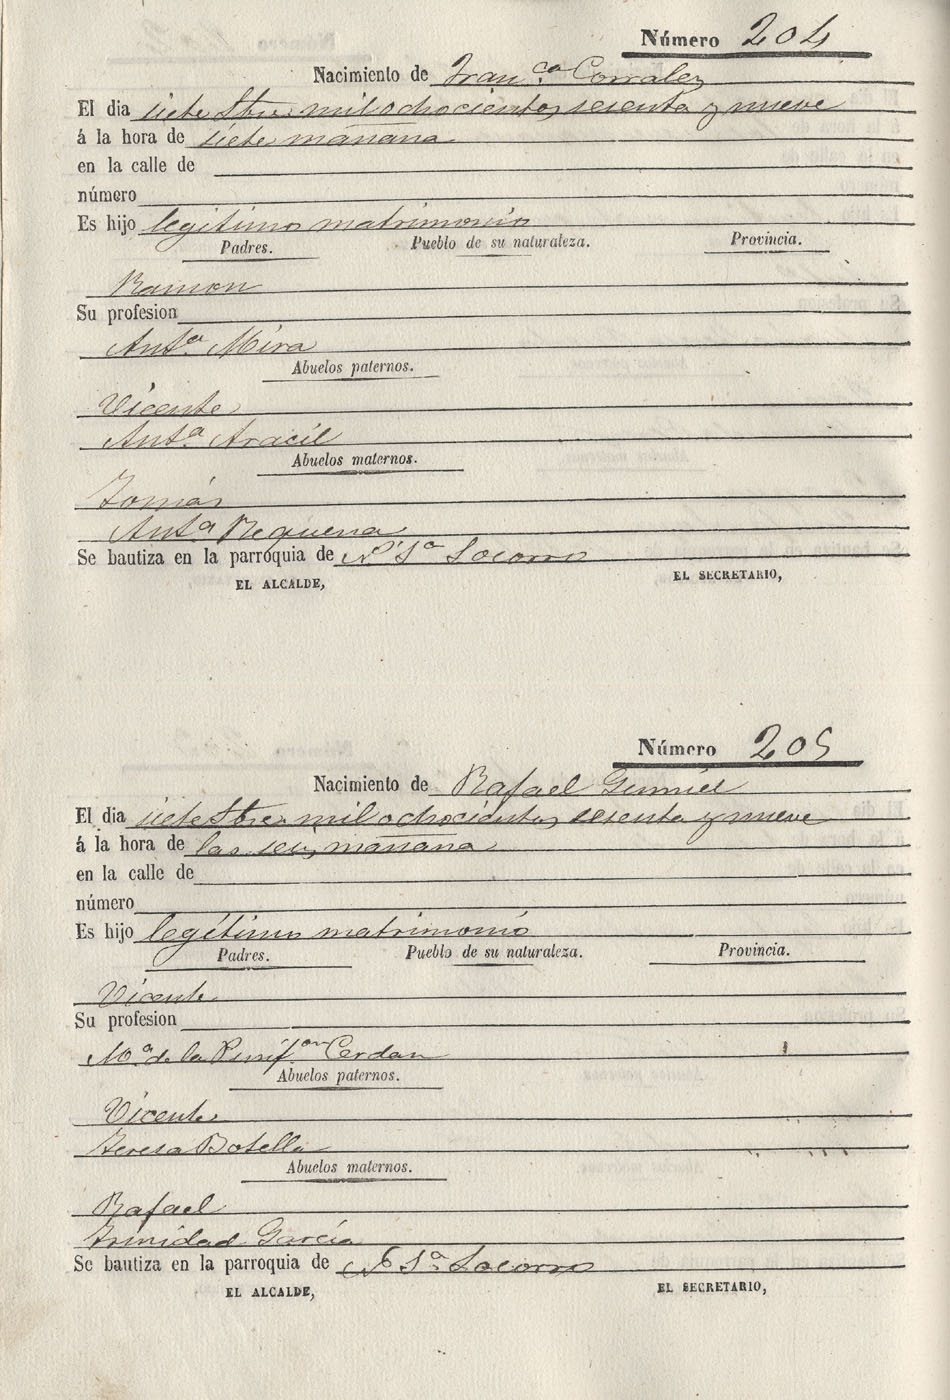 Número 204
Nacimiento de Fran.ca Corralez
El dia siete Stbre mil ochocientos sesenta y nueve
á la hora de siete mañana
en la calle de
número
Es hijo legitimo matrimonio
Padres. Pueblo de su naturaleza. Provincia.
Ramon
Su profesion
Ant.a Mira
Abuelos paternos.
Vicente
Ant.a Aracil
Abuelos maternos.
Tomás
Ant.a Requena
Se bautiza en la parróquia de N.a S.a Socorro
EL ALCALDE, EL SECRETARIO,
Número 205
Nacimiento de Rafael Gumiel
El dia siete Stbre mil ochocientos sesenta y nueve
á la hora de las seis mañana
en la calle de
número
Es hijo legítimo matrimonio
Padres. Pueblo de su naturaleza. Provincia.
Vicente
Su profesion
M.a de la Purif.on Cerdan
Abuelos paternos.
Vicente
Teresa Botella
Abuelos maternos.
Rafael
Trinidad García
Se bautiza en la parroquia de N. S.a Socorro
EL ALCALDE, EL SECRETARIO,